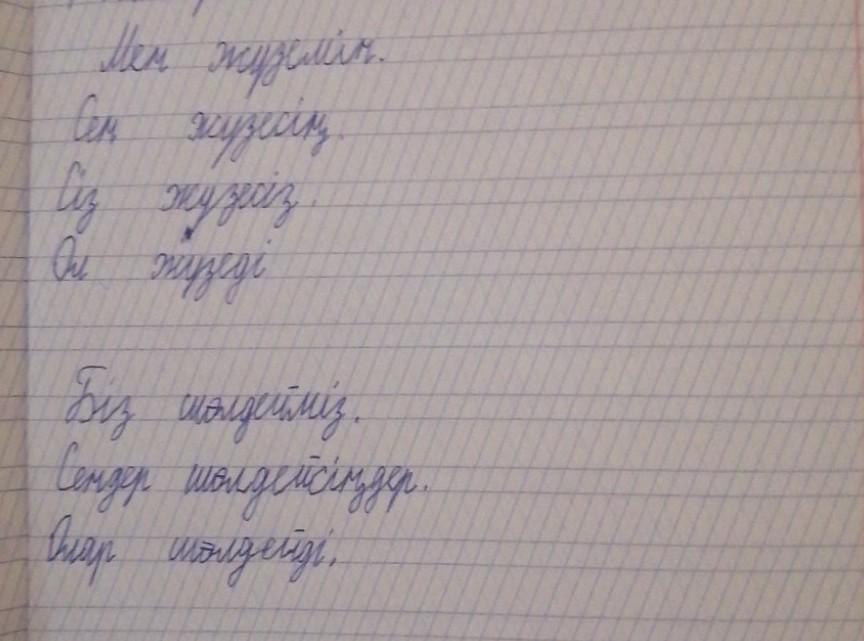 Мен жүземін.
Сен жүзесің.
Сіз жүзесіз.
Ол жүзеді
Біз шөлдейміз.
Сендер шөлдейсіңдер.
Олар шөлдейді.